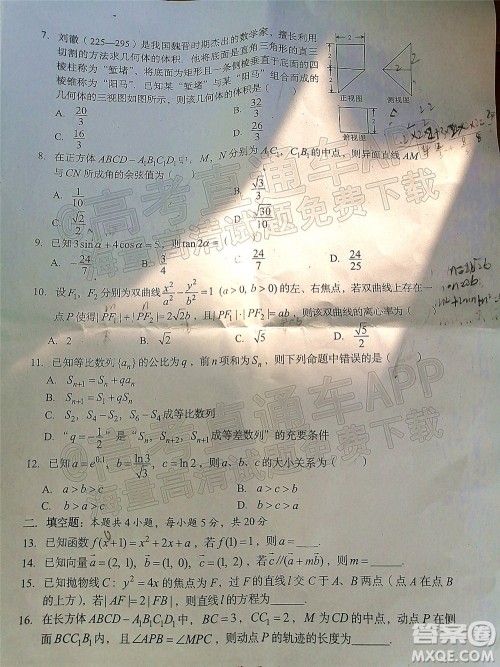 7. 刘徽（225—295）是我国魏晋时期杰出的数学家，擅长利用
切割的方法求几何体的体积。他将底面是直角三角形的直四
棱柱称为“堑堵”，将底面为矩形且一条侧棱垂直于底面的四
棱锥称为“阳马”．已知某“堑堵”与某“阳马”组合而成的
几何体的三视图如图所示，则该几何体的体积是（ ）
正视图 侧视图
俯视图
A. 20/3 B. 32/3
C. 16/3 D. 26/3
8. 在正方体 ABCD－A₁B₁C₁D₁ 中，M，N 分别为 A₁C₁，C₁B₁ 的中点，则异面直线 AM
与 CN 所成角的余弦值为（ ）
A. 1/10 B. √3/3
C. √2/2 D. √30/10
9. 已知 3sinα+4cosα=5，则 tan2α=（ ）
A. －24/7 B. 3/4 C. 24/7 D. 24/25
10. 设 F₁、F₂ 分别为双曲线 x²/a²－y²/b²=1 (a>0, b>0) 的左、右焦点，若双曲线上存在一
点 P 使得 |PF₁|+|PF₂|=2√2b，|PF₁|·|PF₂|=ab，则该双曲线的离心率为（ ）
A. 2 B. √2 C. √5 D. √5/2
11. 已知等比数列 {aₙ} 的公比为 q，前 n 项和为 Sₙ，则下列命题中错误的是（ ）
A. Sₙ₊₁=Sₙ+qaₙ
B. Sₙ₊₁=S₁+qSₙ
C. S₂，S₄－S₂，S₆－S₄ 成等比数列
D. “q=－1/2”是“Sₙ，Sₙ₊₂，Sₙ₊₁ 成等差数列”的充要条件
12. 已知 a=e^0.1，b=ln3/√3，c=ln2，则 a、b、c 的大小关系为（ ）
A. a>b>c B. a>c>b C. b>a>c D. b>c>a
二. 填空题：本题共 4 小题，每小题 5 分，共 20 分
13. 已知函数 f(x+1)=x²+2x+a，若 f(1)=1，则 a=____.
14. 已知向量 a=(2,m)，b=(1,0)，c=(0,1)，若 c//(a+mb)，则 m=____.
15. 已知抛物线 C：y²=4x 的焦点为 F，过 F 的直线 l 交 C 于 A、B 两点（点 A 在点 B
的上方），若 |AF|=2|BF|，则直线 l 的方程为____.
16. 在长方体 ABCD－A₁B₁C₁D₁ 中，BC=3，CC₁=2，M 为 BC 的中点，动点 P 在侧
面 BCC₁B₁ 内，且 ∠APB=∠MPC，则动点 P 的轨迹的长度为____.
@高考直通车APP
海量高清试题免费下载
高考直通车APP
海量高清试题免费下载
答案圈
MXQE.COM